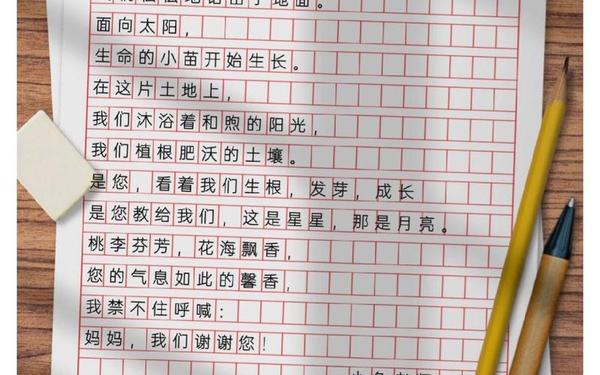 面向太阳，
生命的小苗开始生长。
在这片土地上，
我们沐浴着和煦的阳光，
我们植根肥沃的土壤。
是您，看着我们生根，发芽，成长
是您教给我们，这是星星，那是月亮。
桃李芬芳，花海飘香，
您的气息如此的馨香，
我禁不住呼喊：
妈妈，我们谢谢您！